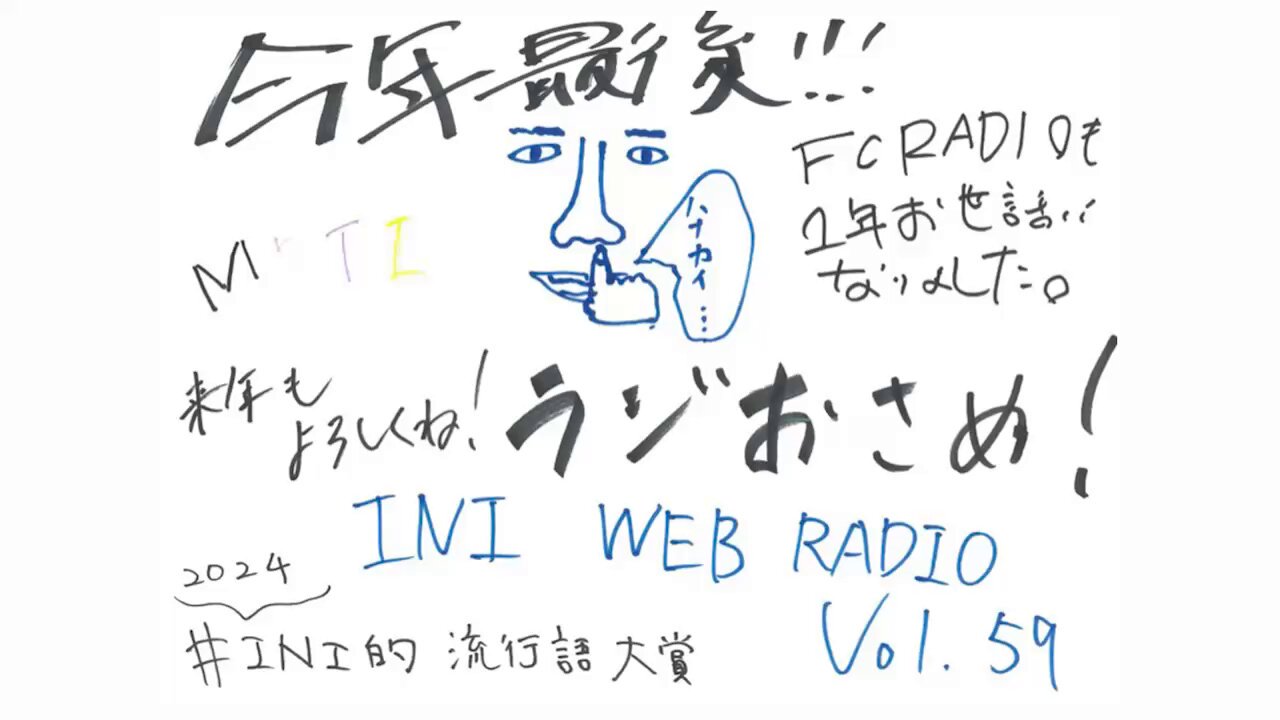 今年最後!!!
FC RADIOも
1年お世話に
なりました。
M TI
ハナカイ…
来年も
よろしくね!
ラジおさめ!
INI WEB RADIO
Vol. 59
2024
#INI的 流行語大賞